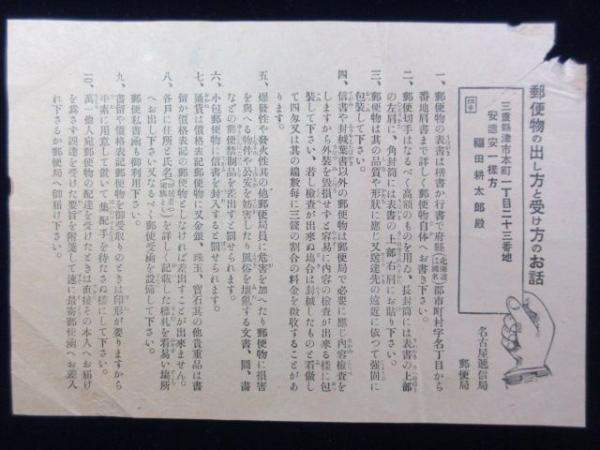 郵便物の出し方と受け方のお話
三重縣津市本町一丁目二十三番地
安達安一樣方
福田耕太郎殿
切手
名古屋遞信局
郵便局
一、郵便物の表書は楷書か行書で府縣(北海道は國名)郡市町村字名丁目から
番地肩書まで詳しく郵便物自体へお書き下さい。
二、郵便切手はなるべく高額のものを用ゐ、長封筒には表書の上部
の左肩に、角封筒には表書の上部右肩にお貼り下さい。
三、郵便物は其の品質や形狀に應じ又送達先の遠近に依つて强固に
包裝して下さい。
四、信書や封緘葉書以外の郵便物は郵便局で必要に應じ內容檢査を
しますから外裝を毀損せずと容易に內容の檢査が出來る樣に包
裝して下さい、若し檢査が出來ぬ場合は封緘したものと看做し
て四匁又は其の端數每に三錢の割合の料金を徵收することがあ
ります。
五、爆發性や發火性其の他郵便局員に危害を加へたり郵便物に損害
を與へる物件や公安を妨害したり風俗を壞亂する文書、圖、畵
などの郵便禁制品を差出すと罰せられます。
六、小包郵便物に信書を封入すると罰せられます。
七、通貨は價格表記郵便物に又金銀、珠玉、寶石其の他貴重品は書
留か價格表記の郵便物としなければ差出すことが出來ません。
八、各戶に住所と氏名を詳しく記載した標札を看易い場所
へお出し下さい又なるべく郵便受凾を設備して下さい。
郵便私書凾も御利用下さい。
九、書留や價格表記郵便物を御受取りのときは印形が要りますから
平素に用意して置いて集配手を待たさぬ樣にして下さい。
十、萬一他人宛郵便物の配達を受けたときは直接その本人へお屆け
を爲さず誤達を受けた要旨を附箋して速に最寄郵便凾へお差入
れ下さるか郵便局へ御屆け下さい。